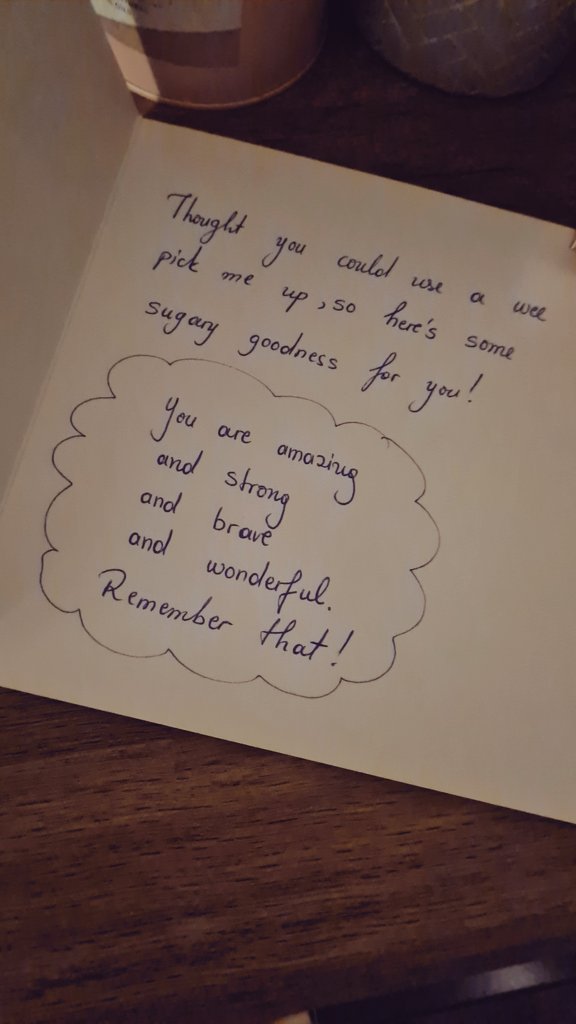 Thought you could use a wee
pick me up, so here's some
sugary goodness for you!
You are amazing
and strong
and brave
and wonderful.
Remember that!